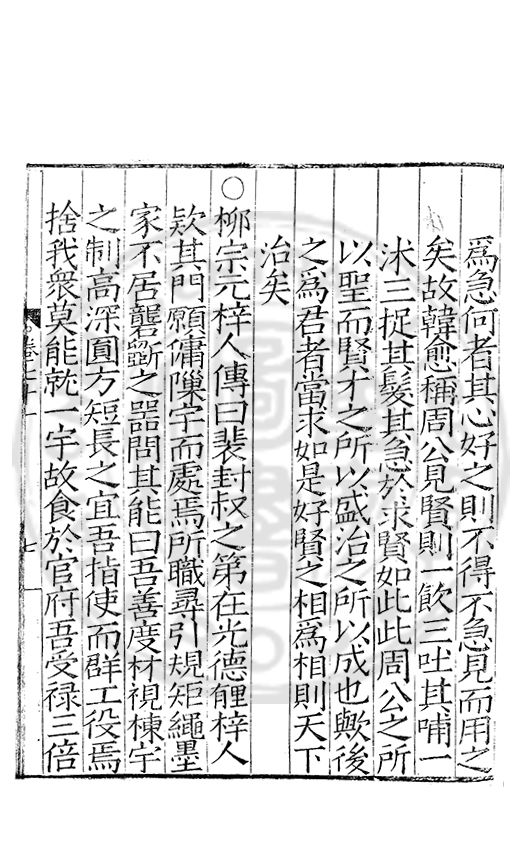 爲急何者其心好之則不得不急見而用之
矣故韓愈稱周公見賢則一飲三吐其哺一
沐三捉其髮其急於求賢如此此周公之所
以聖而賢才之所以盛治之所以成也歟後
之爲君者當求如是好賢之相爲相則天下
治矣
○柳宗元梓人傳曰裴封叔之第在光德里梓人
欵其門願傭隟宇而處焉所職尋引規矩繩墨
家不居礱斵之器問其能曰吾善度材視棟宇
之制高深圓方短長之宜吾指使而群工役焉
捨我衆莫能就一宇故食於官府吾受禄三倍
七